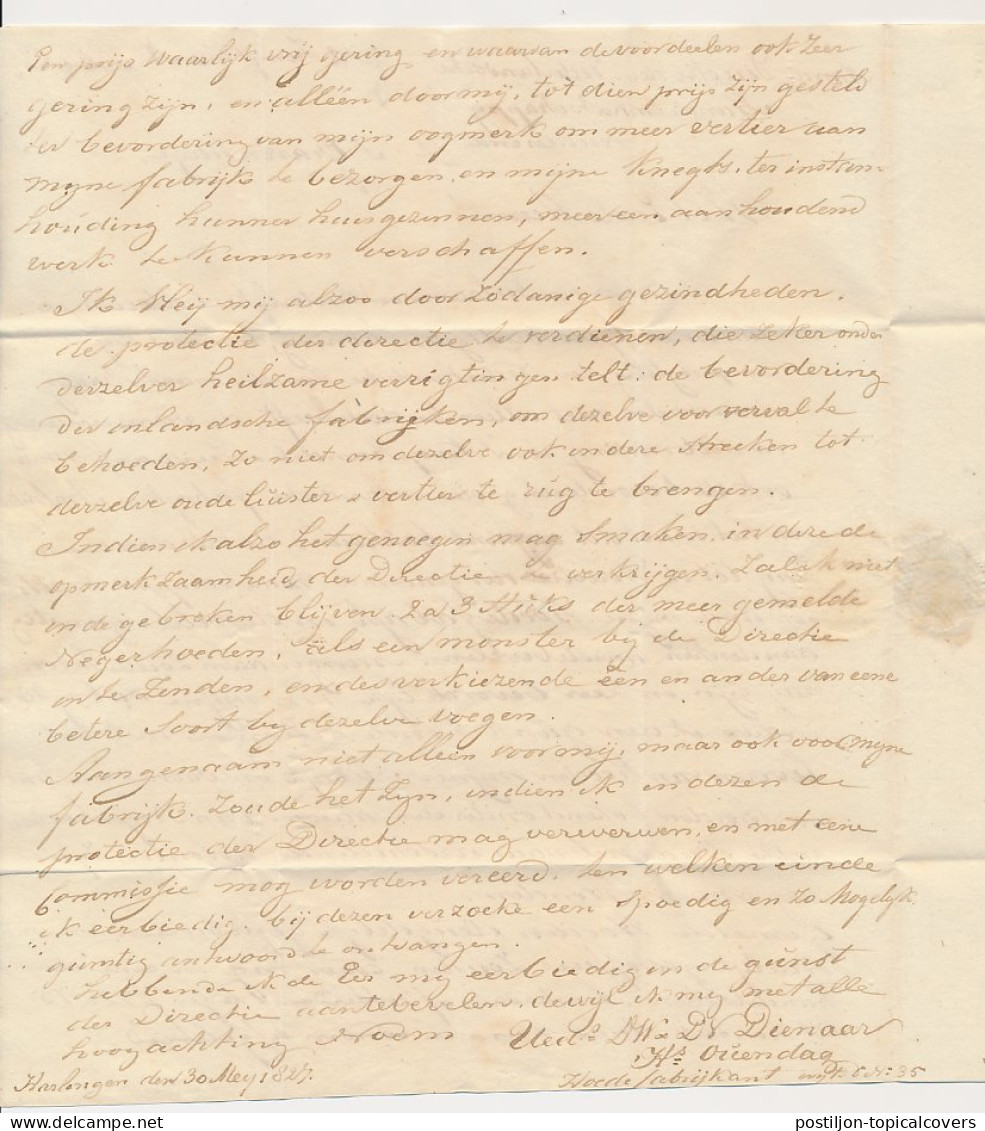 Een prijs waarlijk vrij gering en waarvan de voordeelen ook zeer
gering zijn, en alléén door mij, tot dien prijs zijn gesteld
ter bevordering van mijn oogmerk om meer vertier aan
myne fabrijk te bezorgen en mijne knegts, ter instan-
houding hunner huisgezinnen, meer een aanhoudend
werk te kunnen verschaffen.
Ik vleij mij alzoo door zodanige gezindheden.
de protectie der directie te verdienen, die zeker onder
derzelver heilzame verrigtingen telt: de bevordering
der inlandsche fabrijken, om dezelve voor verval te
behoeden, zo niet om dezelve ook in dere streeken tot
derzelve oude luister & vertier te rug te brengen.
Indien ik alzo het genoegen mag smaken in deze de
opmerkzaamheid der Directie verkrijgen. Zal ik niet
in de gebreken blijven 2 a 3 stuks der meer gemelde
Negerhoeden, als een monster bij de Directie
in te zenden, en des verkiezende één en ander van eene
betere soort by dezelve voegen.
Aangenaam niet alleen voor mij, maar ook voor myne
fabrijk. Zoude het zyn, indien ik in dezen de
protectie der Directie mag verwerven, en met eene
Commissie mog worden vereerd. ten welken einde
ik eerbiedig bij dezen verzoeke een spoedig en zo mogelyk
gunstig antwoord te ontvangen.
hebbende ik de Eer my eerbiedig in de gunst
der Directie aantebevelen, dewijl ik my met alle
hoogachting Noem Ued.s DW. Dr Dienaar
Hs Ouendag
Harlingen den 30 Mey 1827. Hoedefabrijkant wyk 6 N: 35
postiljon-topicalcovers